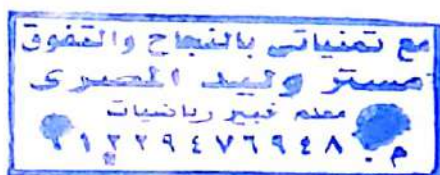 مع تمنياتى بالنجاح والتفوق
مستر وليد المصرى
معلم خبير رياضيات
م. ٠١٢٢٩٤٧٦٩٤٨